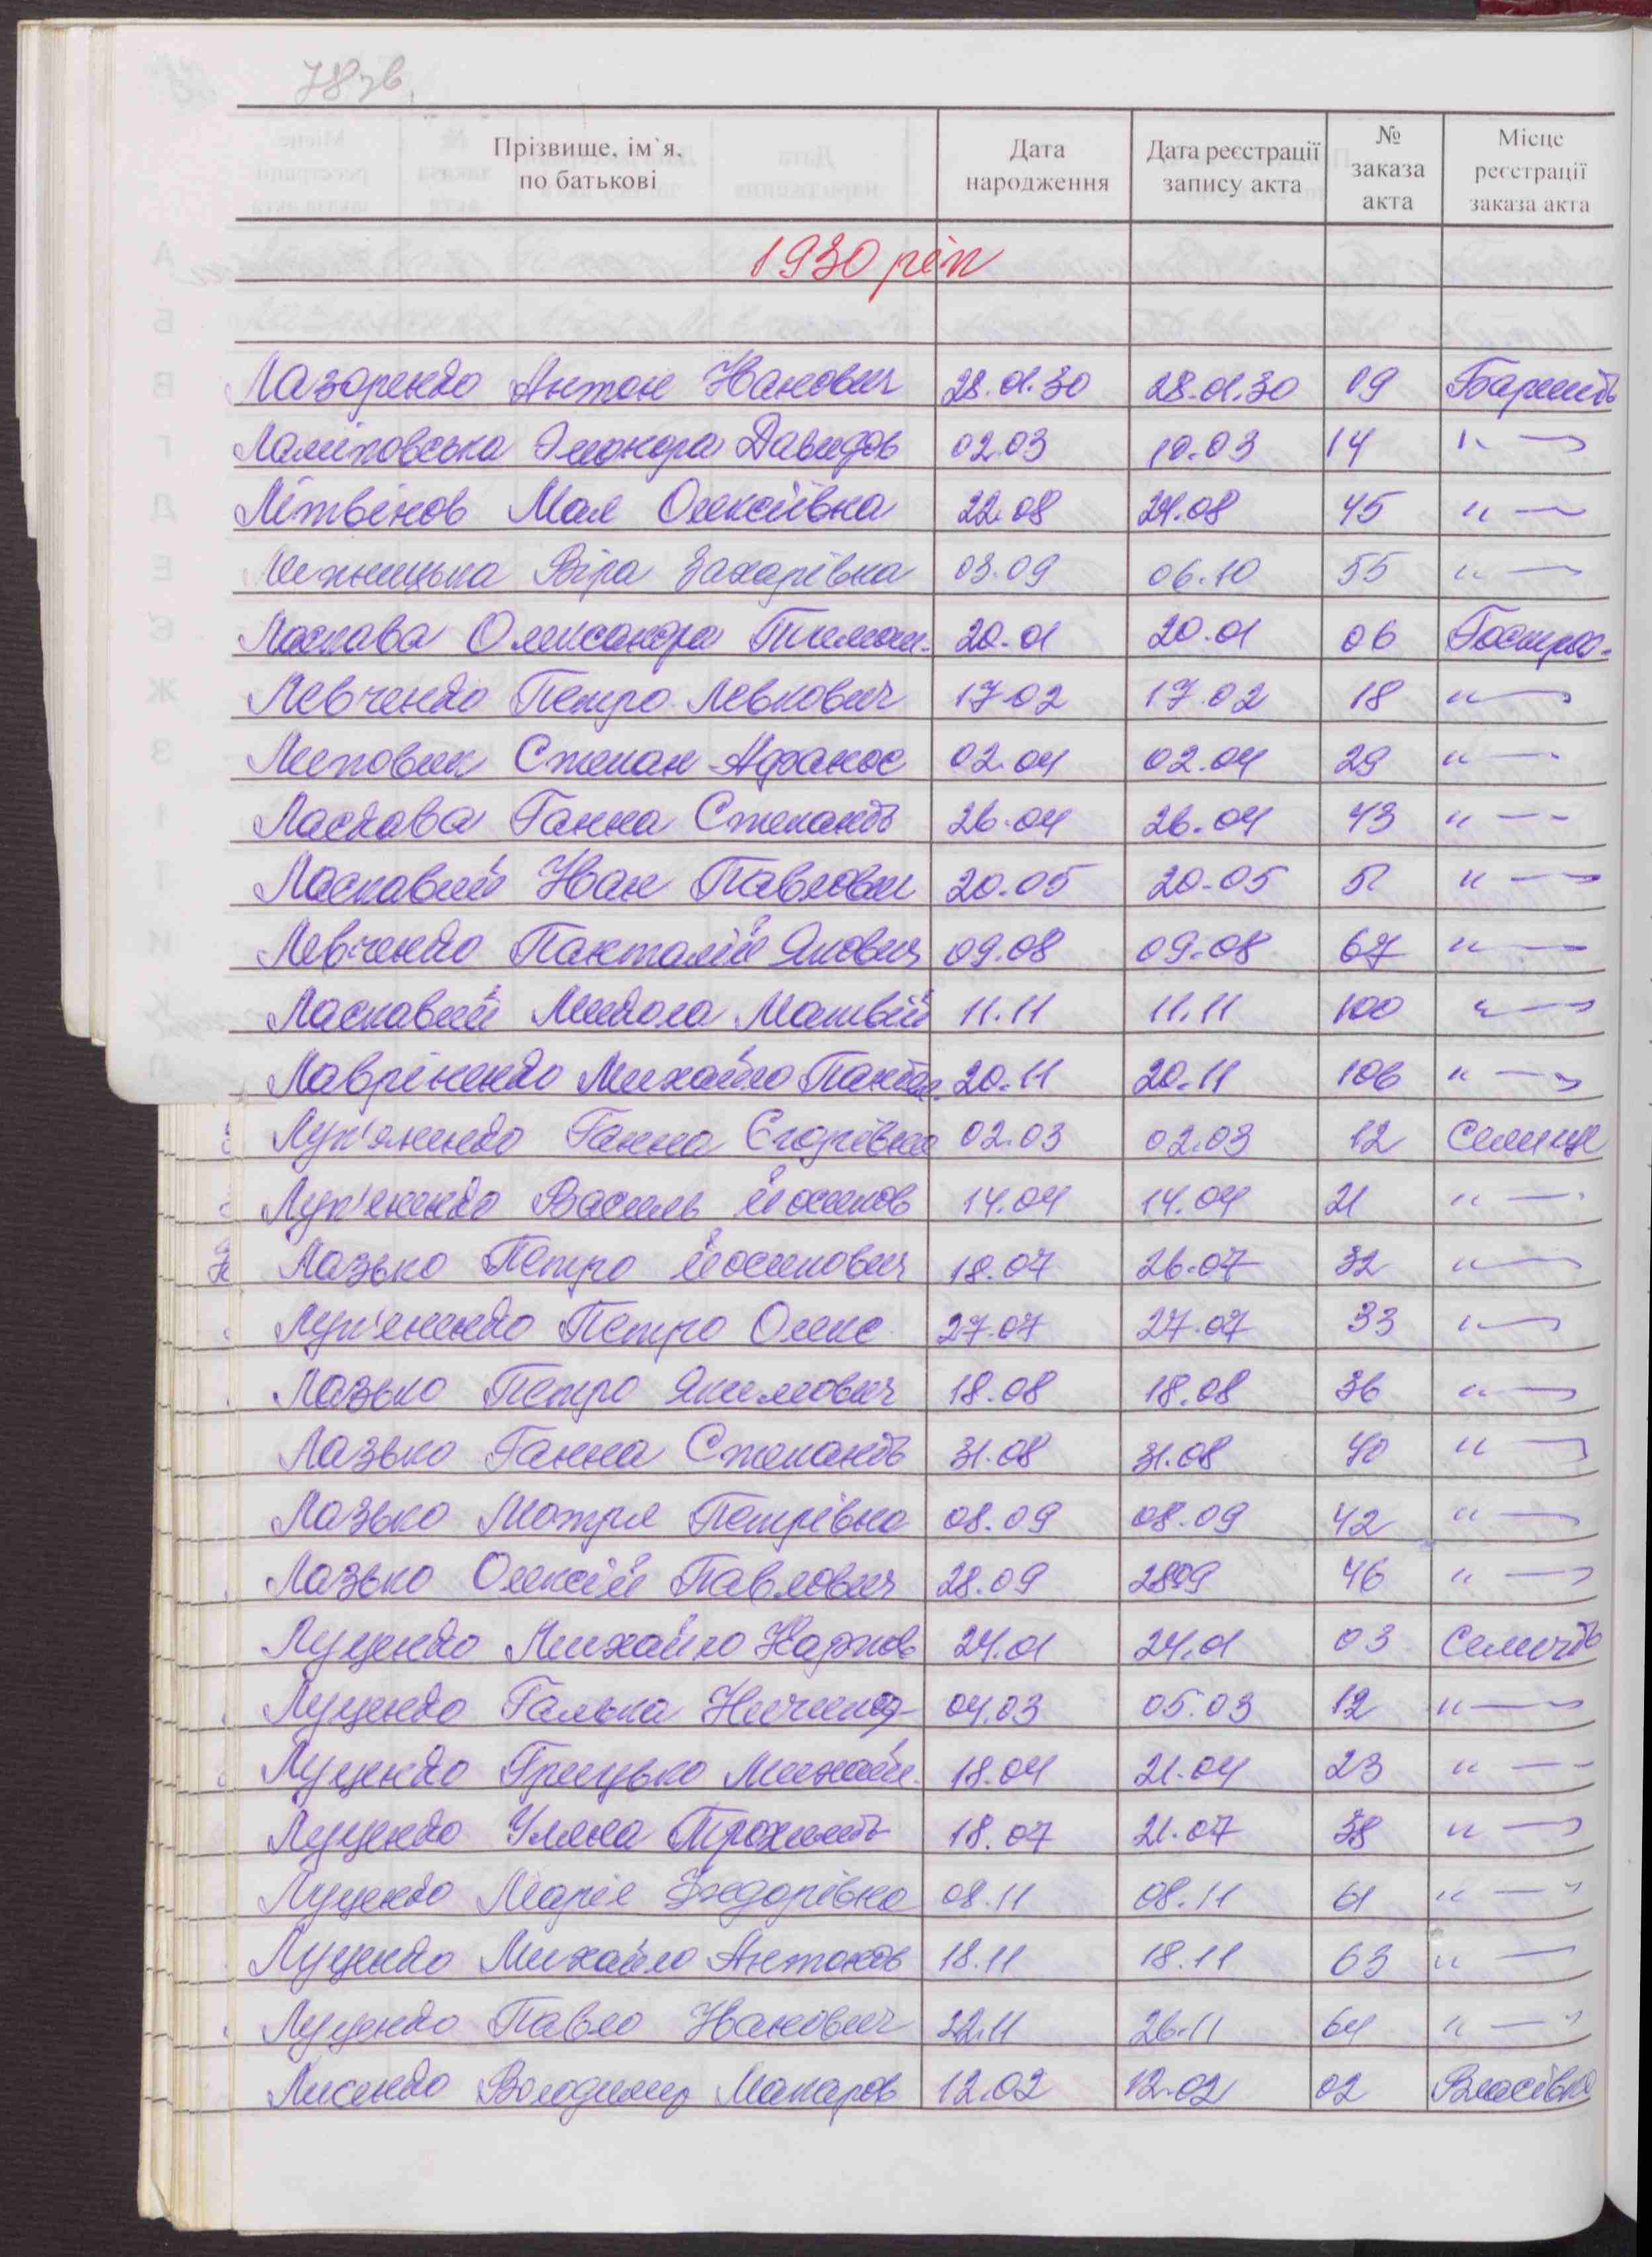 78 зв.
Прізвище, ім`я, по батькові Дата народження Дата реєстрації запису акта № заказа акта Місце реєстрації заказа акта
1930 рік
Лазоренко Антон Іванович 28.01.30 28.01.30 09 Баришів
Давидов 02.03 10.03 14 "—
Літвінов Мая Олексіївна 22.08 24.08 45 "—
Віра Захарівна 03.09 06.10 55 "—
Ласкава Олександра Тимош. 20.01 20.01 06 Гостро-
Левченко Петро Левкович 17.02 17.02 18 "—
Степан Афанас 02.04 02.04 29 "—
Ласкава Ганна Степанів 26.04 26.04 43 "—
Ласкавий Іван Павлович 20.05 20.05 "—
Левченко Пантелій Якович 09.08 09.08 67 "—
Ласкавий Микола Матвій 11.11 11.11 100 "—
Лавріненко Михайло Пантел. 20.11 20.11 106 "—
Лук'яненко Ганна Єгорівна 02.03 02.03 12 Селище
Лук'яненко Василь Йосипов 14.04 14.04 21 "—
Лазько Петро Йосипович 18.07 26.07 32 "—
Лук'яненко Петро Олекс 27.07 27.07 33 "—
Лазько Петро Якимович 18.08 18.08 36 "—
Лазько Ганна Степанів 31.08 31.08 40 "—
Лазько Мотря Петрівна 08.09 08.09 42 "—
Лазько Олексій Павлович 28.09 2809 46 "—
Луценко Михайло Карпов 24.01 24.01 03 Селичів
Луценко Галька 04.03 05.03 12 "—
Луценко Грицько Михайл. 18.04 21.04 23 "—
Луценко Уляна Трохимів 18.07 21.07 38 "—
Луценко Марія Федорівна 08.11 08.11 61 "—
Луценко Михайло Антонов 18.11 18.11 63 "—
Луценко Павло Іванович 22.11 26.11 64 "—
Лисенко Володимир Макаров 12.02 12.02 02 Власівка